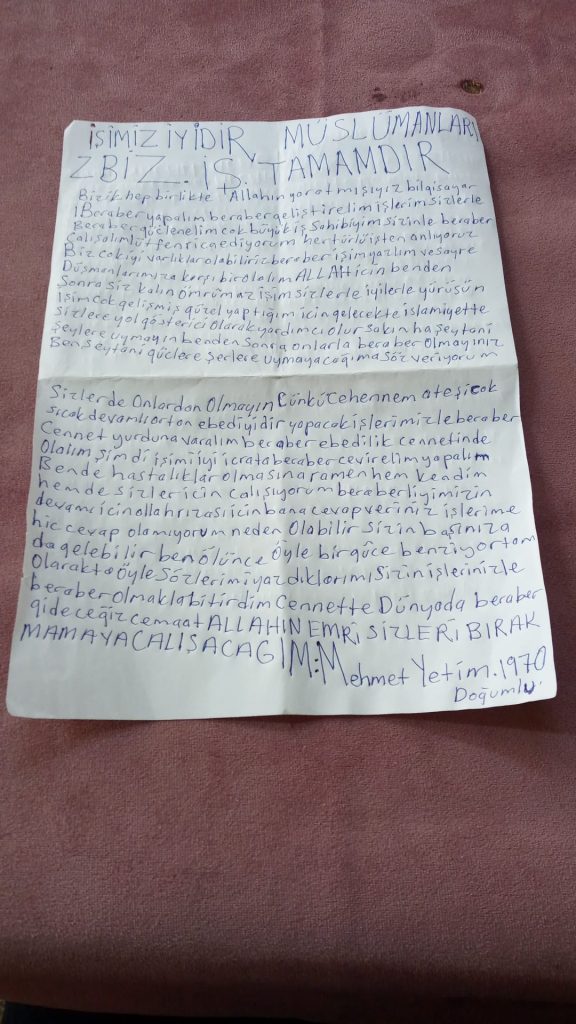 İŞİMİZ İYİDİR, MÜSLÜMANLARI
ZBİZ. İŞ. TAMAMDIR
Bizik hep birlikte Allahın yaratmışıyız bilgisayar
Beraber yapalım beraber geliştirelim işlerim sizlerle
Beraber güclenelim cok büyük iş Sahibiyim sizinle beraber
Calışalım Lütfen rica ediyorum her türlü işten anlıyoruz
Biz cok iyi varlıklar olabiliriz beraber işim yazlım vesayre
Düşmanlarımıza karşı bir olalım ALLAH icin benden
Sonra siz kalın ömrüm az işim sizlerle iyilerle yürüsün
İşim cok gelişmiş güzel yaptığım icin gelecekte islamiyette
Sizlere yol gösterici olarak yardımcı olur sakın ha şeytani
Şeylere uymayın benden sonra onlarla beraber olmayınız
Ben şeytani güclere Şerlere uymayacağıma söz veriyorum
Sizlerde Onlardan Olmayın Cünkü Cehennem ateşi cok
sıcak devamlı ortan ebediyidir yapacak işlerimizle beraber
Cennet yurduna varalım beraber ebedilik cennetinde
Olalım Şimdi işimi iyi icrata beraber cevirelim yapalım
Bende hastalıklar olmasına ramen hem kendim
hemde sizler icin calışıyorum beraberliyimizin
devamı icin allah rızası icin bana cevap veriniz işlerime
hic cevap alamıyorum neden Olabilir sizin başınıza
da gelebilir ben ölünce Öyle bir güce benziyor tam
Olarakta Öyle Sözlerimi yazdıklarımı Sizin işlerinizle
beraber olmakla bitirdim Cennette Dünyada beraber
gideceğiz cemaat ALLAHIN EMRİ SİZLERİ BIRAK
MAMAYA CALIŞACAĞIM: Mehmet Yetim. 1970
Doğumlu.